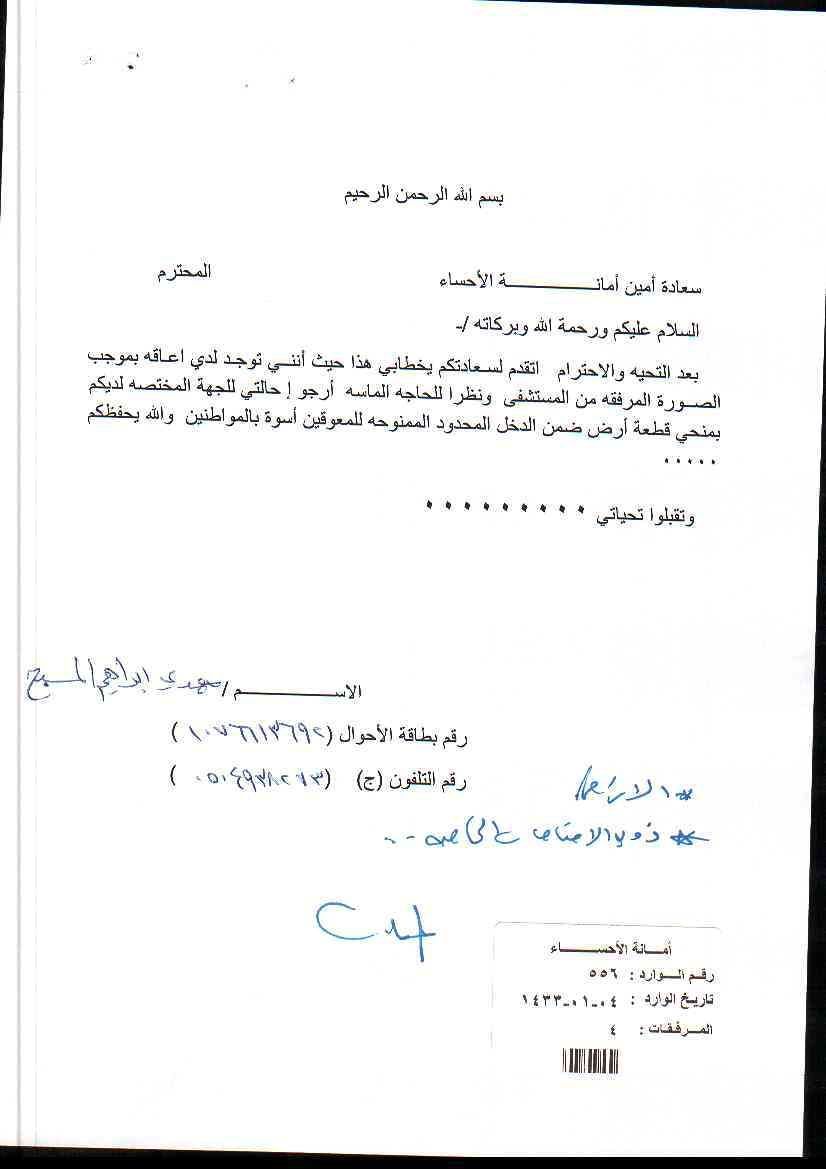 بسم الله الرحمن الرحيم
سعادة أمين أمانـــــــــــة الأحساء المحترم
السلام عليكم ورحمة الله وبركاته /ـ
بعد التحيه والاحترام اتقدم لسعادتكم يخطابي هذا حيث أنني توجد لدي اعاقه بموجب
الصورة المرفقه من المستشفى ونظرا للحاجه الماسه أرجو إحالتي للجهة المختصه لديكم
بمنحي قطعة أرض ضمن الدخل المحدود الممنوحه للمعوقين أسوة بالمواطنين والله يحفظكم
.....
وتقبلوا تحياتي .........
الاســـــــــــم / مهدي ابراهيم
رقم بطاقة الأحوال (١٠٧٦٦١٣٦٩٢)
رقم التلفون (ج) (٠٥٠٤٩٣٨٢٧٣)
* ذوي الاحتياجات الخاصه ...
أمـانـة الأحســـــاء
رقم الـــوارد : ٥٥٦
تاريخ الوارد : ٠٤-٠١-١٤٣٣
المـــرفقـات : ٤